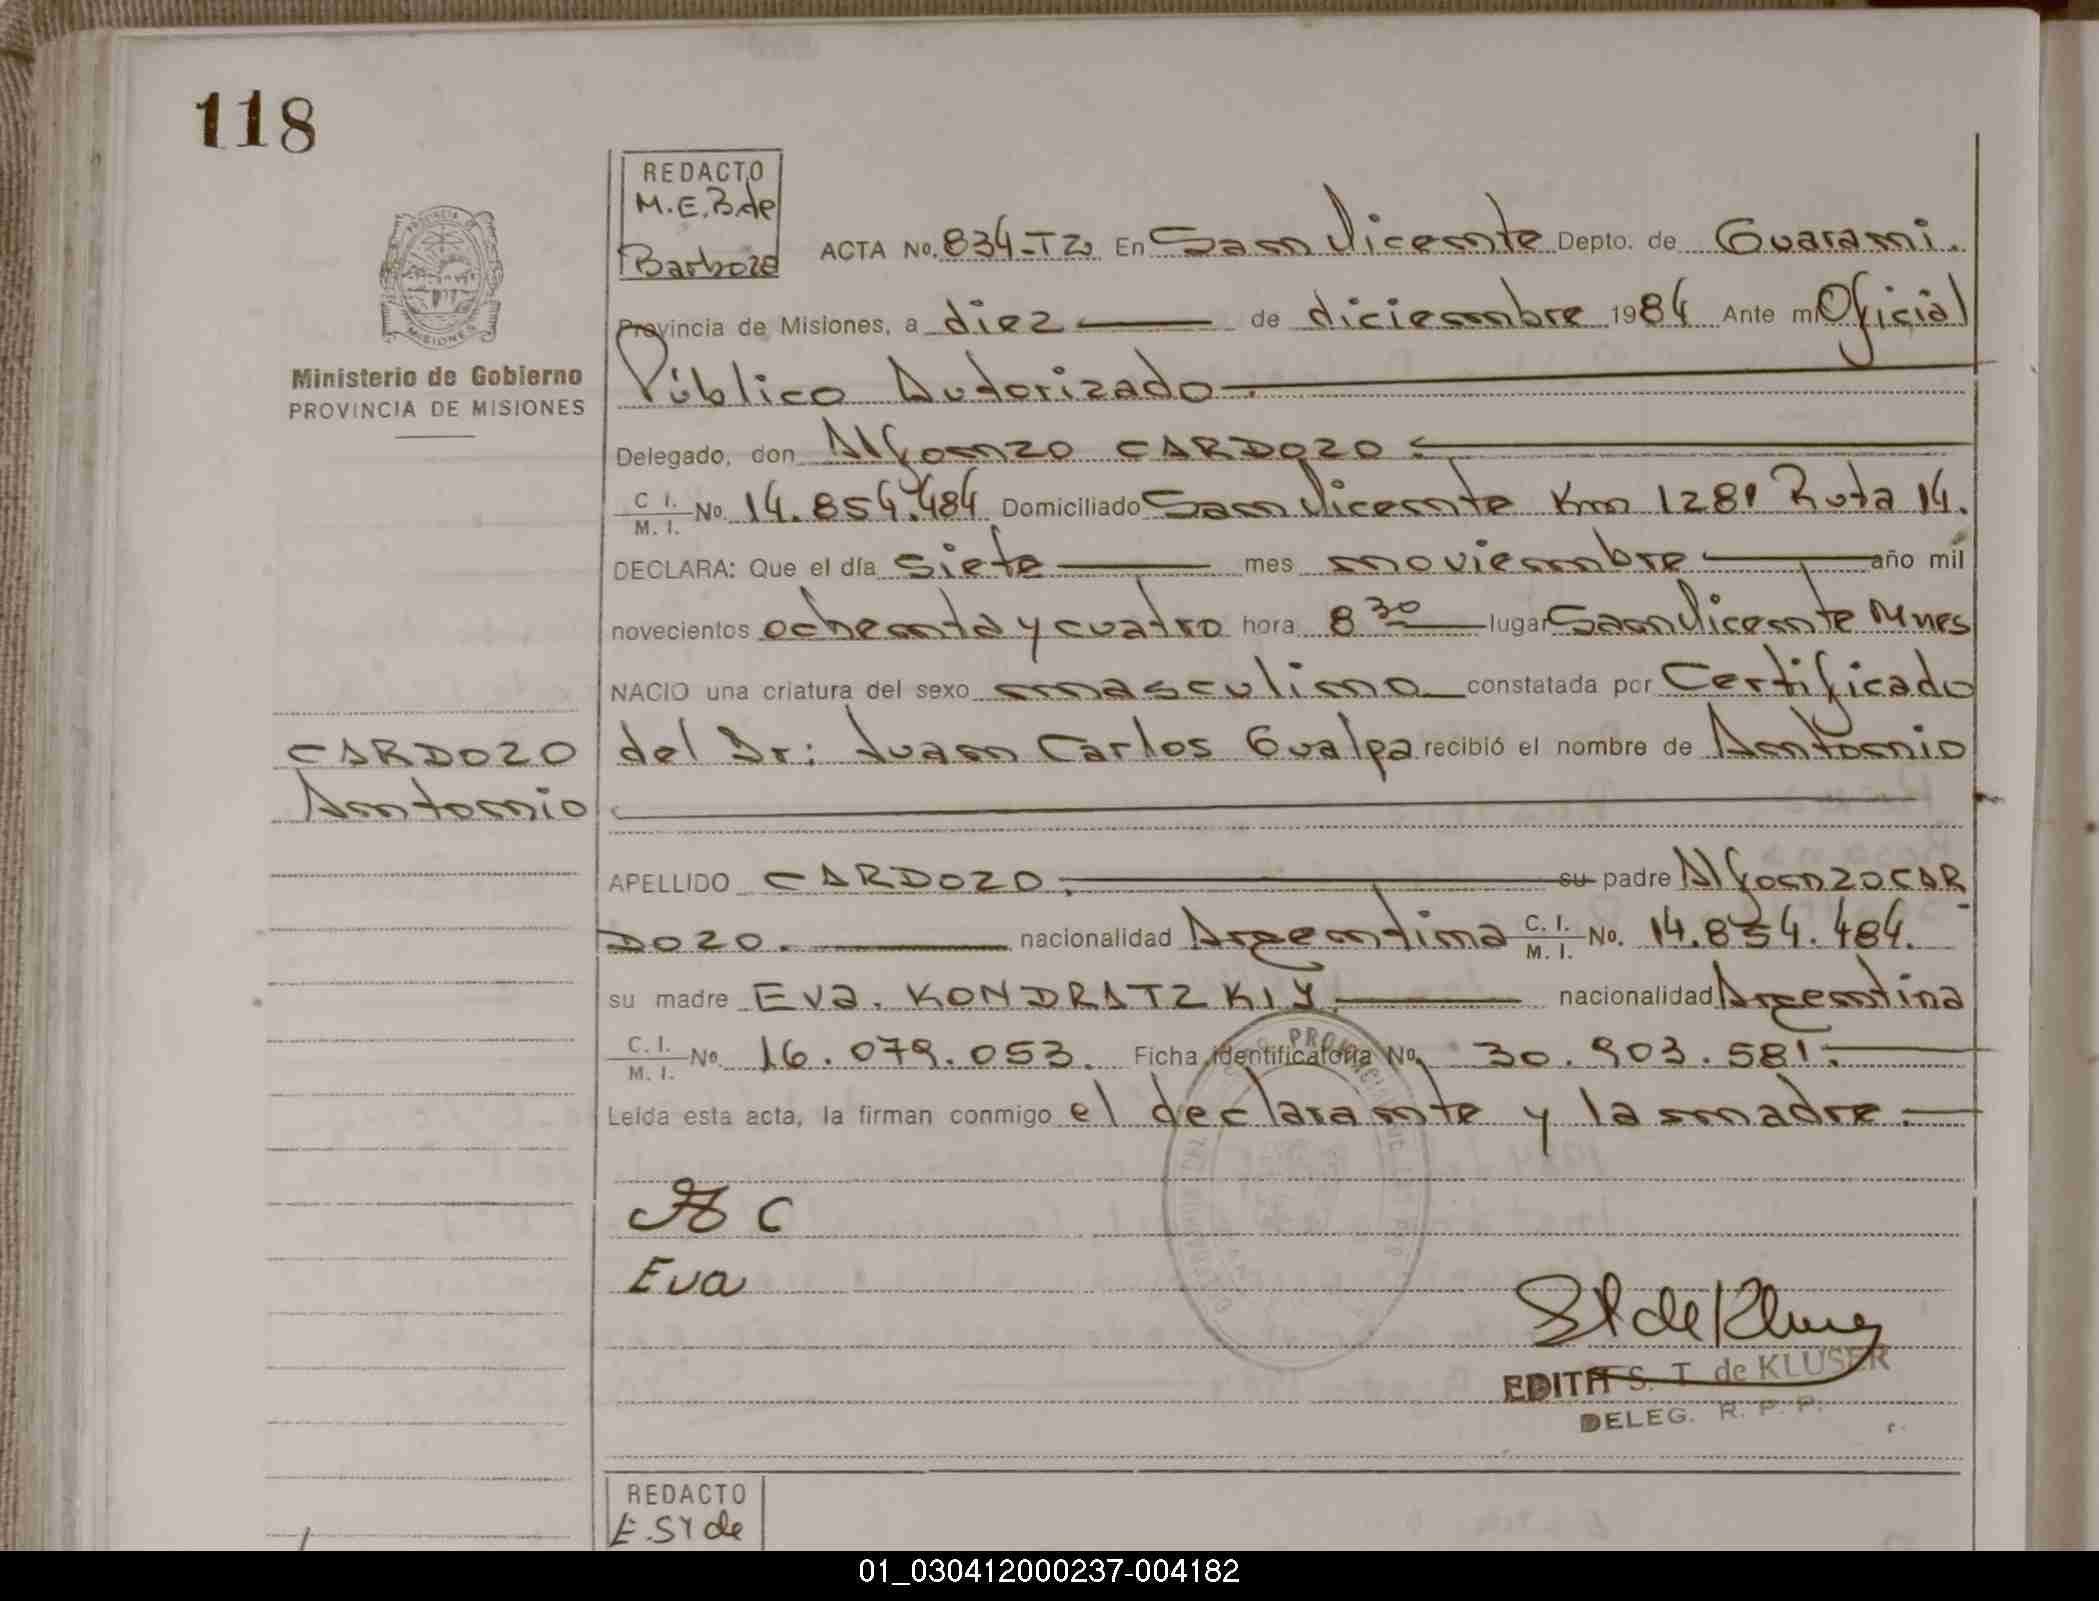 118
REDACTO
M.E.B.de
Barboza
ACTA No. 834-T2º En San Vicente Depto. de Guarani.
Provincia de Misiones, a diez de diciembre 1984 Ante mi Oficial
Público Autorizado.
Ministerio de Gobierno
PROVINCIA DE MISIONES
Delegado, don Alfonzo CARDOZO
C. I. / M. I. No. 14.854.484 Domiciliado San Vicente Km 1281 Ruta 14.
DECLARA: Que el día siete mes noviembre año mil
novecientos ochenta y cuatro hora 8 30 lugar San Vicente Mnes
NACIO una criatura del sexo masculino constatada por Certificado
del Dr: Juan Carlos Gualpa recibió el nombre de Antonio
CARDOZO
Antonio
APELLIDO CARDOZO. su padre Alfonzo CAR
DOZO. nacionalidad Argentina C. I. / M. I. No. 14.854.484.
su madre Eva. KONDRATZKIY. nacionalidad Argentina
C. I. / M. I. No. 16.079.053. Ficha identificatoria No. 30.903.581.
Leída esta acta, la firman conmigo el declarante y la madre.
A C
Eva
EDITH S. T. de KLUSER
DELEG. R. P. P.
REDACTO
E.ST de
01_030412000237-004182